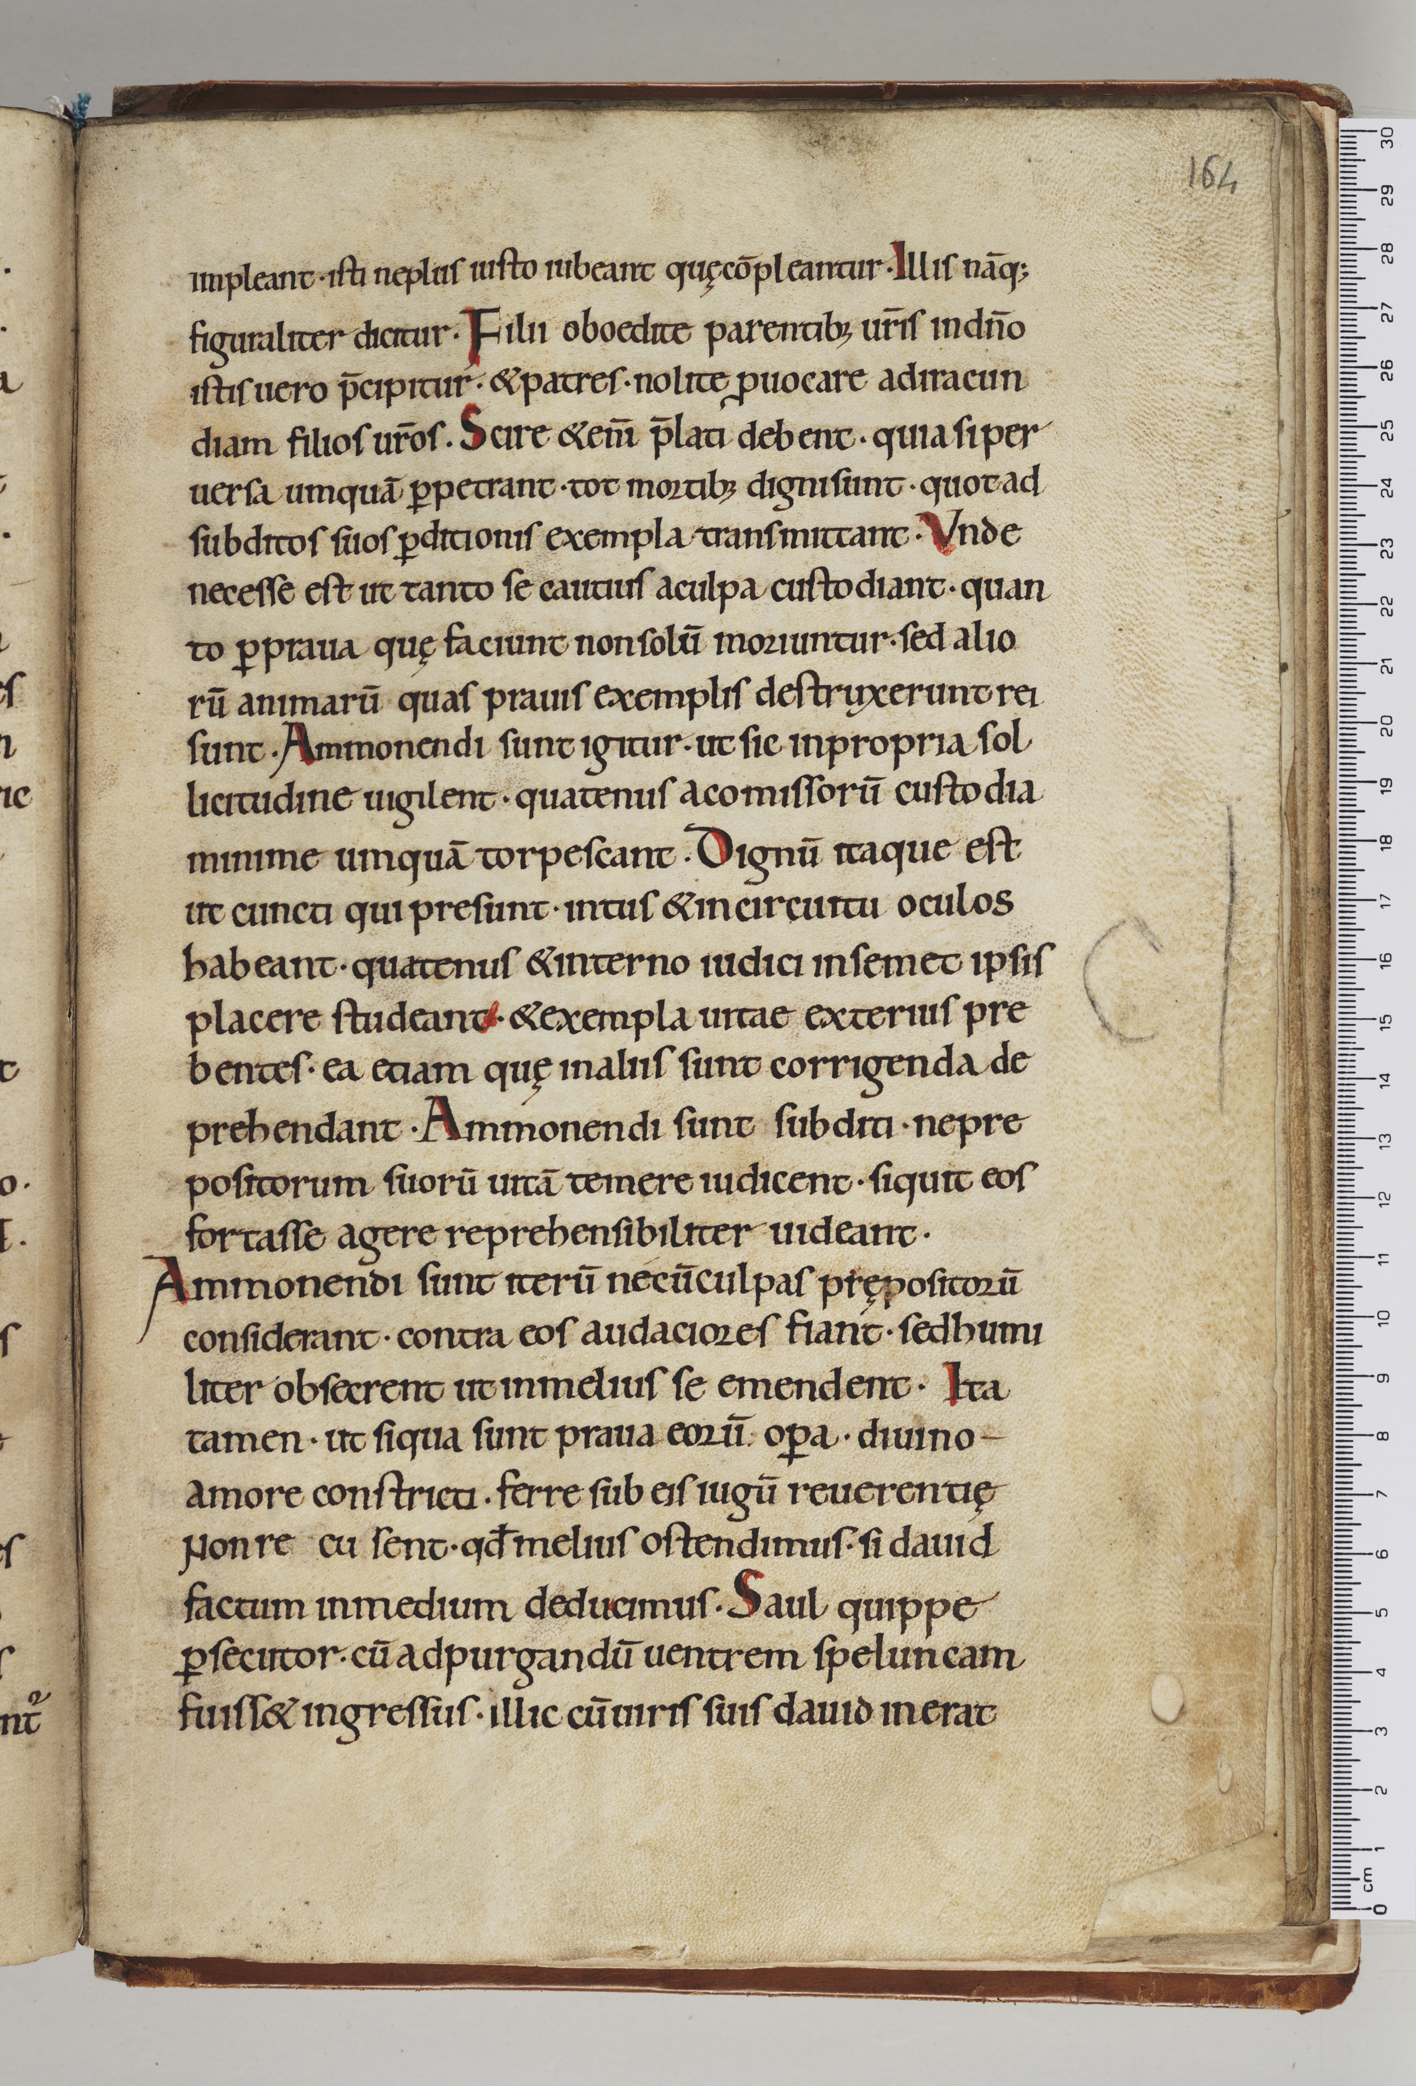 164
impleant · isti ne plus iusto iubeant quę cō̄pleantur · Illis nāq;
figuraliter dicitur · Filii oboedite parentib; ur̄is in dn̄o
istis uero p̄cipitur · & patres · nolite ꝓuocare ad iracun
diam filios ur̄os . Scire & eni̅ p̄lati debent · quia si per
uersa umquā ꝑpetrant · tot mortib; digni sunt · quot ad
subditos suos ꝑditionis exempla transmittant · Vnde
necesse est ut tanto se cautius a culpa custodiant · quan
to ꝑ praua quę faciunt non solū moriuntur · sed alio
rū animarū quas prauis exemplis destruxerunt rei
sunt · Ammonendi sunt igitur · ut sic in propria sol
licitudine uigilent · quatenus a comissorū custodia
minime umquā torpescant · Dignū itaque est
ut cuncti qui presunt · intus & in circuitu oculos
habeant · quatenus & interno iudici in semet ipsis
placere studeant · & exempla uitae exterius pre
bentes · ea etiam quę in aliis sunt corrigenda de
prehendant · Ammonendi sunt subditi · ne pre
positorum suorū uitā temere iudicent · siquit eos
fortasse agere reprehensibiliter uideant ·
Ammonendi sunt iterū ne cū culpas prępositorū
considerant · contra eos audaciores fiant · sed humi
liter obsecrent ut in melius se emendent · Ita
tamen · ut siqua sunt praua eorū oꝑa · diuino
amore constricti · ferre sub eis iugū reuerentię
non re cu sent · qd̄ melius ostendimus · si dauid
factum in medium deducimus · Saul quippe
ꝑsecutor · cū ad purgandū uentrem speluncam
fuiss& ingressus · illic cū uiris suis dauid inerat
30
29
28
27
26
25
24
23
22
21
20
19
18
17
16
15
14
13
12
11
10
9
8
7
6
5
4
3
2
1
cm
0